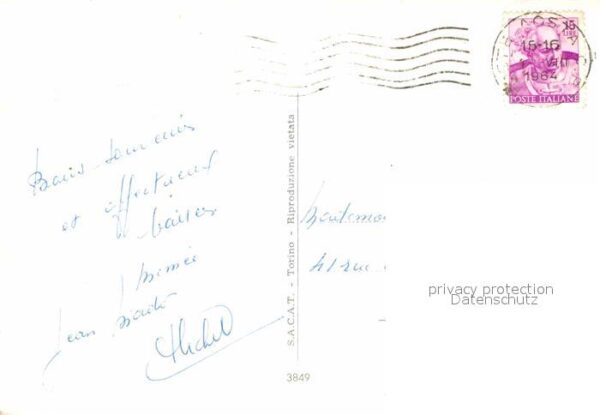 AOSTA
15-16
VIII
1964
15
LIRE
POSTE ITALIANE
Bons souvenirs
et affectueux
baisers
Mémée
Jean
Michel
S.A.C.A.T. - Torino - Riproduzione vietata
3849
41 rue
privacy protection
Datenschutz